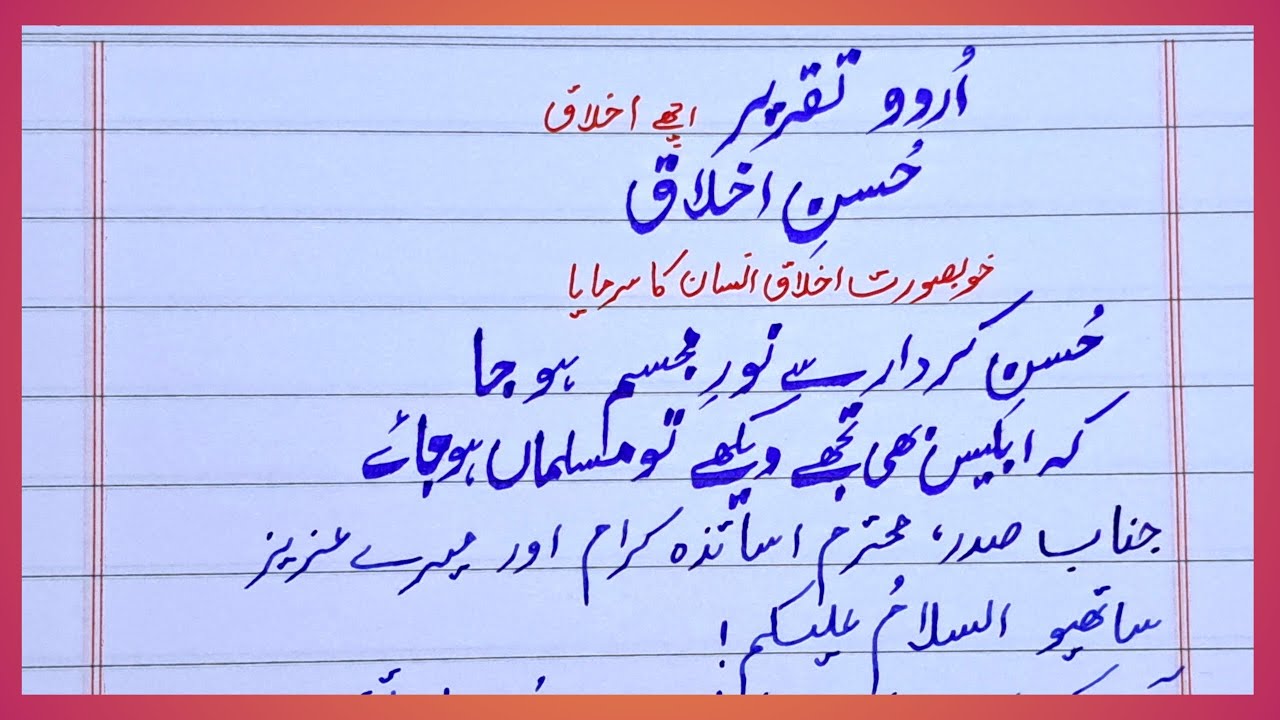 اُردو تقریر اچھے اخلاق
حُسنِ اخلاق
خوبصورت اخلاق انسان کا سرمایا
حُسنِ کردار سے نورِ مجسم ہو جا
کہ ابلیس بھی تجھے دیکھے تو مسلماں ہو جائے
جناب صدر، محترم اساتذہ کرام اور میرے عزیز
ساتھیو السلامُ علیکم!